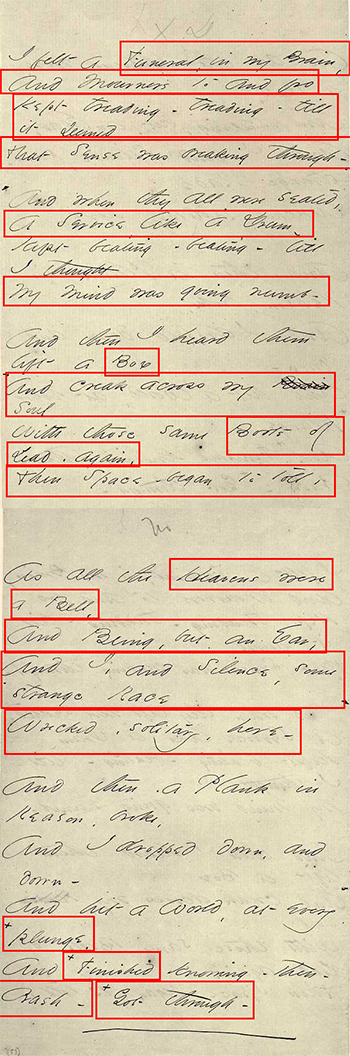 I felt a Funeral, in my Brain,
And Mourners to and fro
Kept treading - treading - till
it seemed
That Sense was breaking through -
And when they all were seated,
A Service like a Drum -
Kept beating - beating - till
I thought
My mind was going numb -
And then I heard them
lift a Box
And creak across my Brain
Soul
With those same Boots of
Lead, again,
Then Space - began to toll,
As all the Heavens were
a Bell,
And Being, but an Ear,
And I, and Silence, some
strange Race
Wrecked, solitary, here -
And then a Plank in
Reason, broke,
And I dropped down, and
down -
And hit a World, at every
+ plunge,
And + Finished knowing - then -
Crash - + Got through -